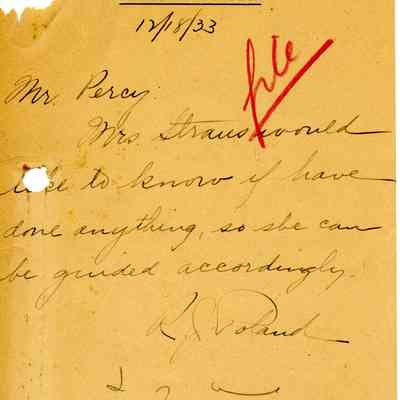 12/18/33
file
Mr. Percy:
Mrs. Straus would
like to know if have
done anything, so she can
be guided accordingly.
R J Poland